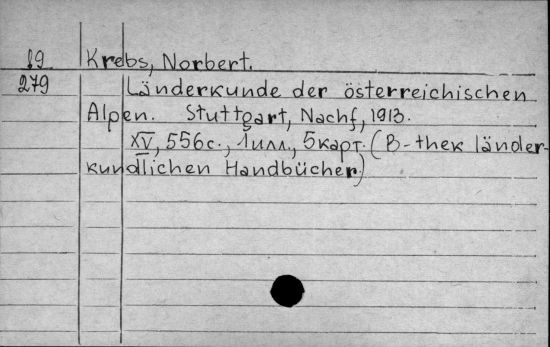 19 Krebs, Norbert.
279 Länderkunde der österreichischen
Alpen. Stuttgart, Nachf, 1913.
XV, 556 с., 1 илл., 5 карт. (B-thek länder-
kundlichen Handbücher)